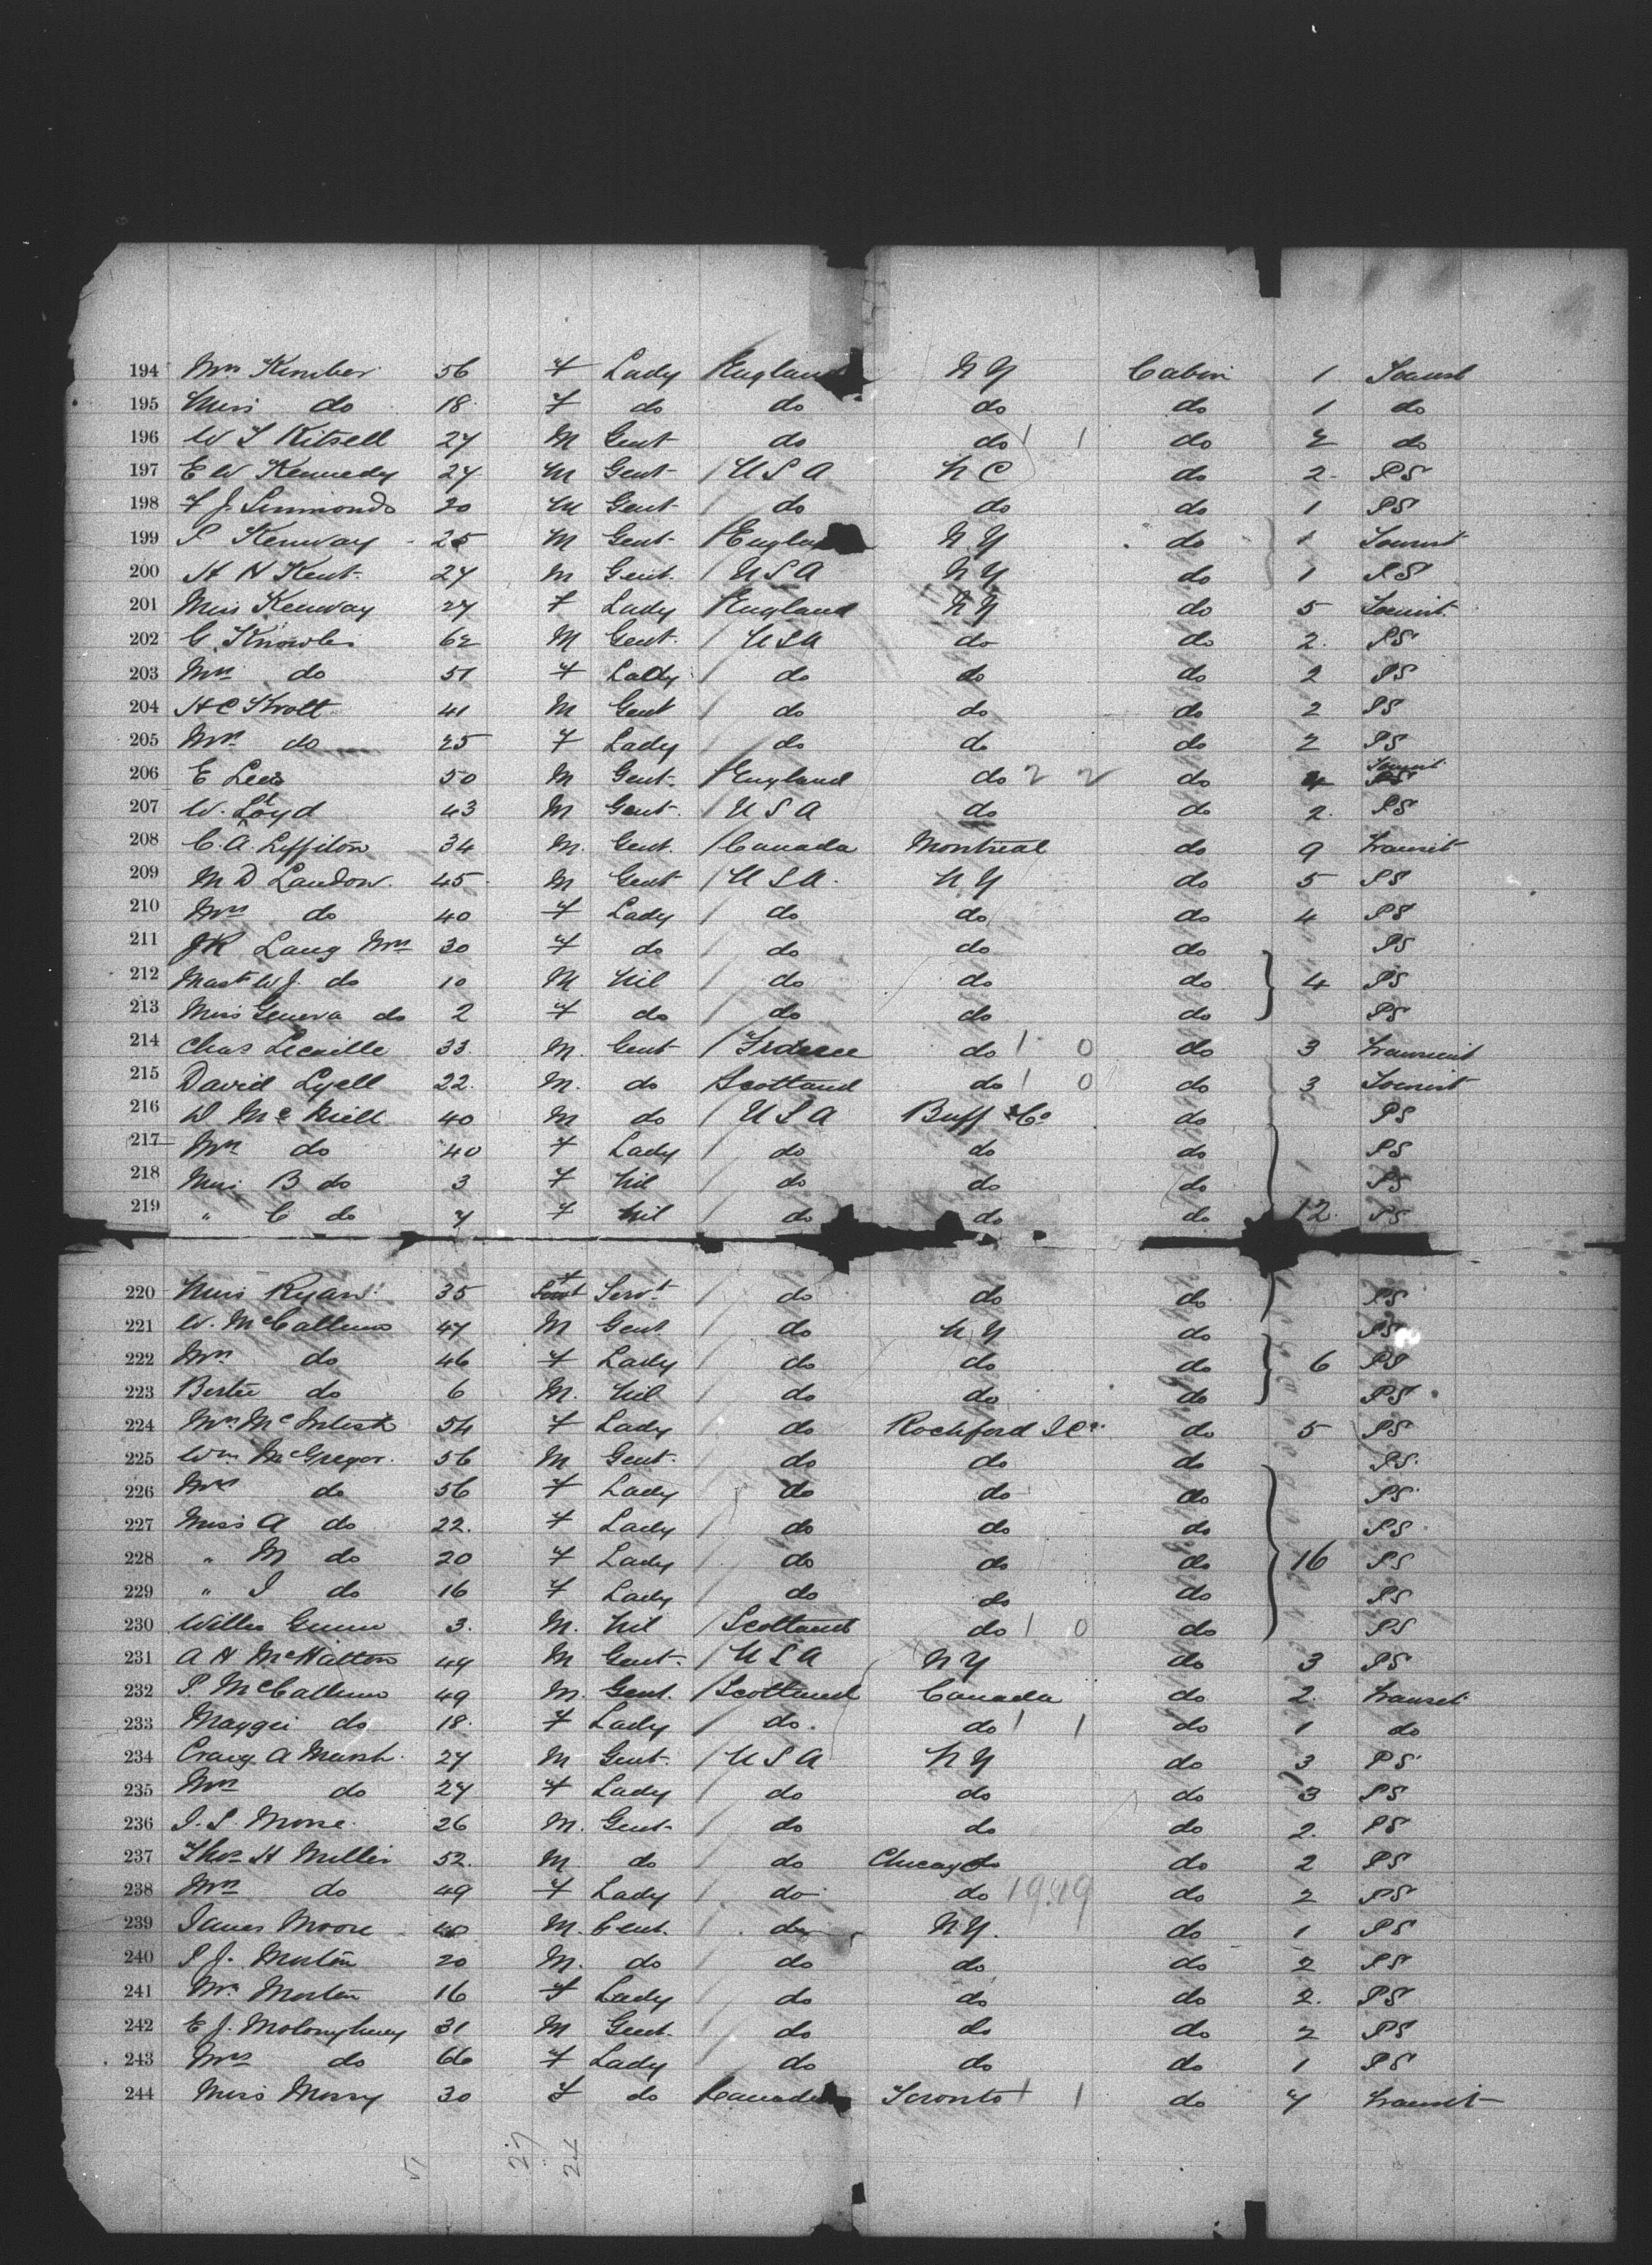 194 Mrs Kimber 56 F Lady England N Y Cabin 1 Tourist
195 Miss do 18 F do do do do 1 do
196 W S Kitsell 27 M Gent do do 1 1 do 2 do
197 E W Kennedy 27 M Gent / U S A N C do 2 PS
198 F J. Simmonds 20 M Gent / do do do 1 PS
199 P Kenway 25 M Gent / England N Y do 1 Tourist
200 H N Kent 27 M Gent / U S A N Y do 1 PS
201 Miss Kenway 27 F Lady / England N Y do 5 Tourist
202 G. Knowles 62 M Gent / U S A do do 2. PS
203 Mrs do 51 F Lady / do do do 2 PS
204 H C Krolt 41 M Gent / do do do 2 PS
205 Mrs do 25 F Lady / do do do 2 PS
206 E Lees 50 M Gent / England do 2 2 do 4 Tourist
207 W. Loyd 43 M Gent. / U S A do do 2. PS
208 C. A. Leffiton 34 M. Gent. / Canada Montreal do 9 Transit
209 M D Landow. 45 M Gent / U S A. N Y do 5 PS
210 Mrs do 40 F Lady / do do do 4 PS
211 J R Lang Mrs 30 F do / do do do PS
212 Mast W J. do 10 M Nil / do do do 4 PS
213 Miss Geneva do 2 F do / do do do PS
214 Chas Lecaille 33. M. Gent / do 1 0 do 3 Transient
215 David Lyell 22. M. do / Scotland do 1 0 do 3 Tourist
216 D McNeill 40 M do / U S A Buff Co do PS
217 Mrs do 40 F Lady / do do do PS
218 Miss B do 3 F Nil / do do do PS
219 " C do 7 F Nil / do do do 12. PS
220 Miss Ryan 35 F Servt / do do do PS
221 W. McCallum 47 M Gent / do N Y do PS
222 Mrs do 46 F Lady / do do do 6 PS
223 Bertie do 6 M. Nil / do do do PS
224 Mrs McIntosh 54 F Lady / do Rockford Ill do 5 PS
225 Wm McGregor. 56 M Gent. / do do do PS.
226 Mrs do 56 F Lady / do do do PS
227 Miss A do 22. F Lady / do do do PS
228 " M do 20 F Lady / do do do 16 PS
229 " I do 16 F Lady / do do do PS
230 Willie Gunn 3. M. Nil / Scotland do 1 0 do PS
231 A H McHatton 49 M Gent. / U S A N Y do 3 PS
232 P. McCallum 49 M. Gent. / Scotland Canada do 2. Transit
233 Maggie do 18. F Lady / do. do 1 1 do 1 do
234 Craig A Marsh. 27 M Gent. / U S A N Y do 3 PS
235 Mrs do 27 F Lady / do do do 3 PS
236 I. S. Morse. 26 M. Gent / do do do 2. PS
237 Thos H Miller 52. M do / do Chicago do 2 PS
238 Mrs do 49 F Lady / do do 19 19 do 2 PS
239 James Moore 40 M. Gent. do N Y. do 1 PS
240 P J. Morten 20 M. do do do do 2 PS
241 Mrs Morten 16 F Lady / do do do 2. PS
242 E J. 31 M Gent. / do do do 2 PS
243 Mrs do 66 F Lady / do do do 1 PS
244 Miss Morry 30 F do Canada Toronto 1 1 do 7 Transit
5 27 24